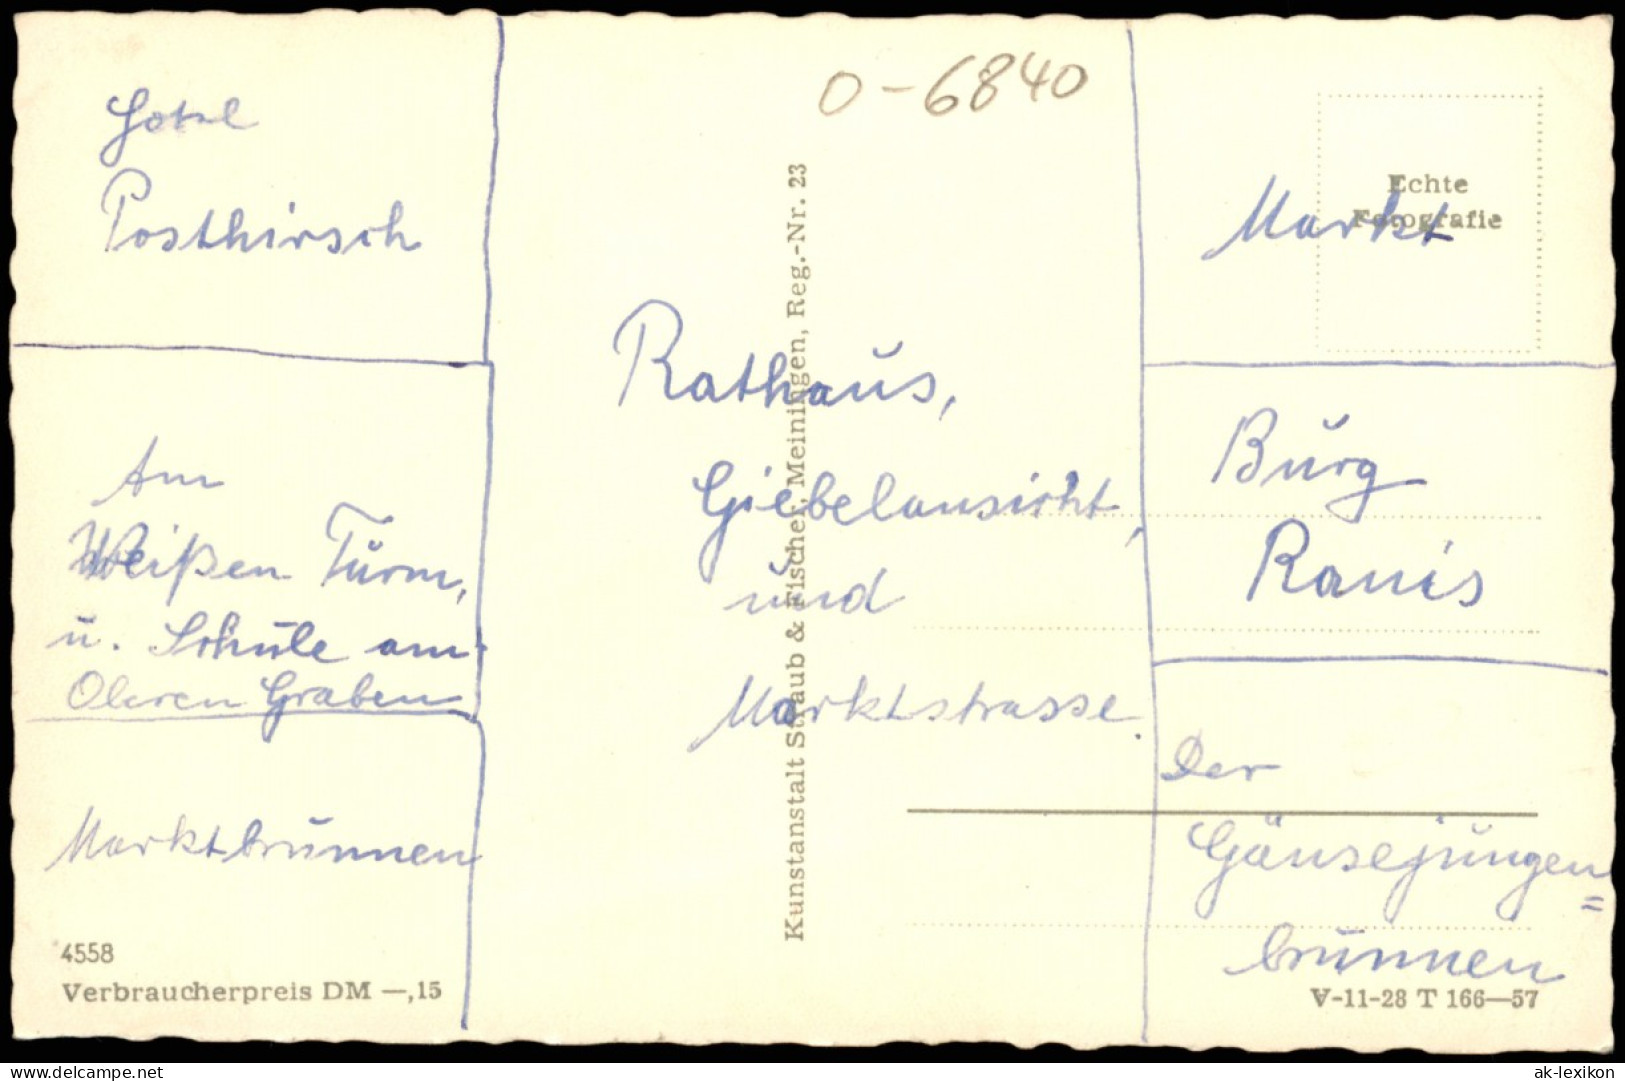 O-6840
Hotel
Posthirsch
Am
Weißen Turm,
u. Schule am
Oberen Graben
Marktbrunnen
4558
Verbraucherpreis DM —,15
Rathaus,
Giebelansicht,
und
Marktstrasse.
Kunstanstalt Straub & Fischer, Meiningen, Reg.-Nr. 23
Echte
Fotografie
Markt
Burg
Ranis
Der
Gänsejungen=
brunnen
V-11-28 T 166—57
delcampe.net
ak-lexikon